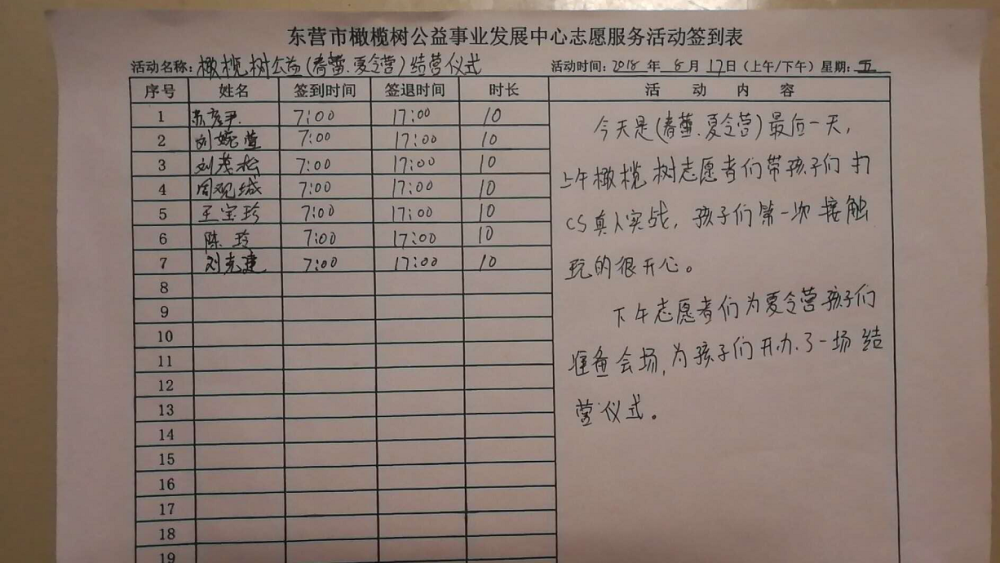 东营市橄榄树公益事业发展中心志愿服务活动签到表
活动名称：橄榄树公益(春蕾.夏令营)结营仪式 活动时间：2018年8月17日（上午/下午）星期：五
序号 姓名 签到时间 签退时间 时长 活动内容
1 7:00 17:00 10
2 刘婉莹 7:00 17:00 10
3 刘茂松 7:00 17:00 10
4 周观城 7:00 17:00 10
5 王宝珍 7:00 17:00 10
6 陈玲 7:00 17:00 10
7 刘光建 7:00 17:00 10
8
9
10
11
12
13
14
15
16
17
18
19
今天是(春蕾.夏令营)最后一天,
上午橄榄树志愿者们带孩子们打
CS真人实战,孩子们第一次接触
玩的很开心。
下午志愿者们为夏令营孩子们
准备会场,为孩子们开办了一场结
营仪式。